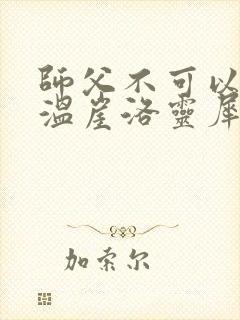 師父不可以
溫崖洛靈犀
加索尔